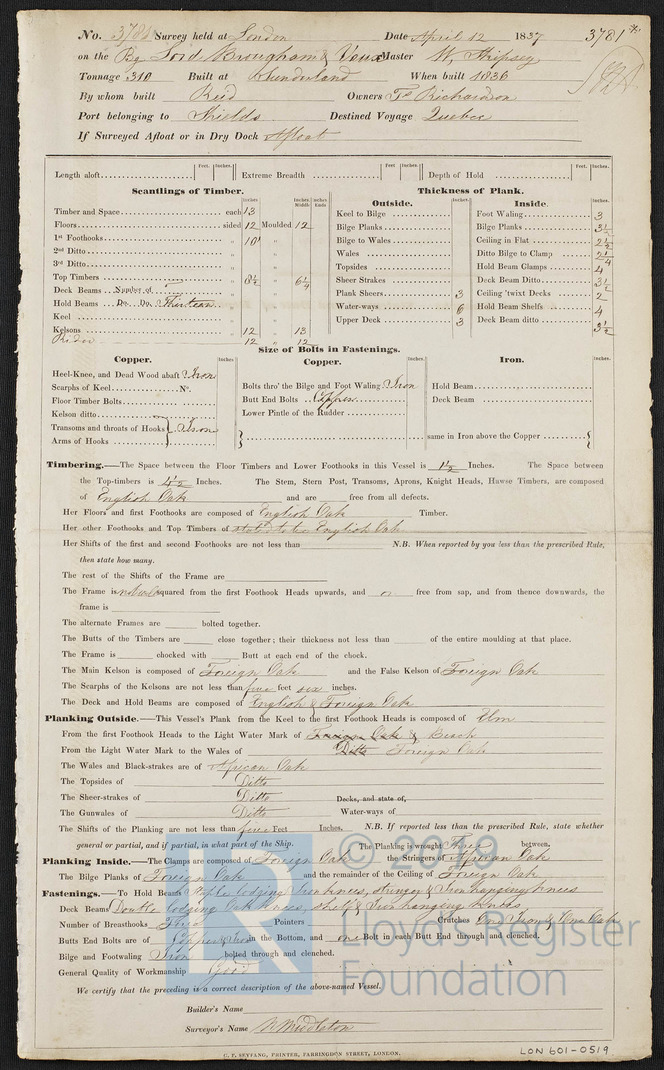 No. 3781 Survey held at London Date April 12 1837 3781*
on the Bg Lord Brougham & Vaux Master W. Thipsey
Tonnage 310 Built at Sunderland When built 1836
By whom built Reed Owners Richardson
Port belonging to Shields Destined Voyage Quebec
If Surveyed Afloat or in Dry Dock Afloat
Length aloft Feet. Inches. Extreme Breadth Feet. Inches. Depth of Hold Feet. Inches.
Scantlings of Timber. Thickness of Plank.
Inches. Inches Middle Inches Ends Outside. Inches. Inside. Inches.
Timber and Space each 13 Keel to Bilge Foot Waling 3
Floors sided 12 Moulded 12 Bilge Planks Bilge Planks 3½
1st Foothooks " 10 " Bilge to Wales Ceiling in Flat 2½
2nd Ditto " " Wales Ditto Bilge to Clamp 2¼
3rd Ditto " " Topsides Hold Beam Clamps 4
Top Timbers " 8½ " 6¼ Sheer Strakes Deck Beam Ditto 3½
Deck Beams Number of " " Plank Sheers 3 Ceiling 'twixt Decks 2
Hold Beams Do. Do. Thirteen " " Water-ways 6 Hold Beam Shelfs 4
Keel " " Upper Deck 3 Deck Beam ditto 3½
Kelsons " 12 " 13
Rider 12 " 12
Size of Bolts in Fastenings.
Copper. Inches Copper. Inches. Iron. Inches.
Heel-Knee, and Dead Wood abaft Iron Bolts thro' the Bilge and Foot Waling Iron Hold Beam
Scarphs of Keel No. Butt End Bolts Copper Deck Beam
Floor Timber Bolts Lower Pintle of the Rudder
Kelson ditto
Transoms and throats of Hooks Iron same in Iron above the Copper
Arms of Hooks
Timbering.—The Space between the Floor Timbers and Lower Foothooks in this Vessel is 1½ Inches. The Space between
the Top-timbers is 4½ Inches. The Stem, Stern Post, Transoms, Aprons, Knight Heads, Hawse Timbers, are composed
of English Oak and are free from all defects.
Her Floors and first Foothooks are composed of English Oak Timber.
Her other Foothooks and Top Timbers of stated to be English Oak
Her Shifts of the first and second Foothooks are not less than N.B. When reported by you less than the prescribed Rule,
then state how many.
The rest of the Shifts of the Frame are
The Frame is squared from the first Foothook Heads upwards, and free from sap, and from thence downwards, the
frame is
The alternate Frames are bolted together.
The Butts of the Timbers are close together; their thickness not less than of the entire moulding at that place.
The Frame is chocked with Butt at each end of the chock.
The Main Kelson is composed of Foreign Oak and the False Kelson of Foreign Oak
The Scarphs of the Kelsons are not less than five feet six inches.
The Deck and Hold Beams are composed of English & Foreign Oak
Planking Outside.—This Vessel's Plank from the Keel to the first Foothook Heads is composed of Elm
From the first Foothook Heads to the Light Water Mark of Foreign Oak & Beech
From the Light Water Mark to the Wales of Ditto Foreign Oak
The Wales and Black-strakes are of African Oak
The Topsides of Ditto
The Sheer-strakes of Ditto Decks, and state of,
The Gunwales of Ditto Water-ways of
The Shifts of the Planking are not less than five Feet Inches. N.B. If reported less than the prescribed Rule, state whether
general or partial, and if partial, in what part of the Ship. The Planking is wrought Three between.
Planking Inside.—The Clamps are composed of Foreign Oak the Stringers of African Oak
The Bilge Planks of Foreign Oak and the remainder of the Ceiling of Foreign Oak
Fastenings.—To Hold Beams Staple lodging Iron knees, stringer & Iron hanging knees
Deck Beams Double lodging Oak knees, shelf & Iron hanging knees
Number of Breasthooks Four Pointers Crutches One Iron & One Oak
Butts End Bolts are of Copper & Iron in the Bottom, and one Bolt in each Butt End through and clenched.
Bilge and Footwaling Iron bolted through and clenched.
General Quality of Workmanship Good
We certify that the preceding is a correct description of the above-named Vessel.
Builder's Name
Surveyor's Name R Middleton
C. F. SEYFANG, PRINTER, FARRINGDON STREET, LONDON.
LON 601-0519
© 2019
Lloyd's Register
Foundation